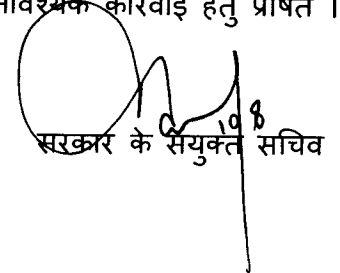 आवश्यक कारवाई हेतु प्रेषित ।
सरकार के संयुक्त सचिव